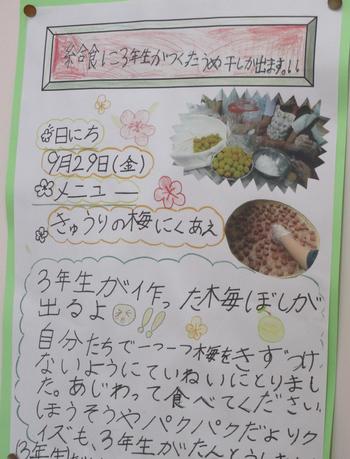 給食に3年生がつくたうめ干しが出ます。
日にち
9月29日(金)
メニュー
きゅうりの梅にくあえ
3年生が作った梅ぼしが
出るよ!!
自分たちで一つ一つ梅をきずつけ
ないようにていねいにとりまし
た。あじわって食べてください。
ほうそうやパクパクだよりク
イズも、3年生がたんとうしま
(3年生)